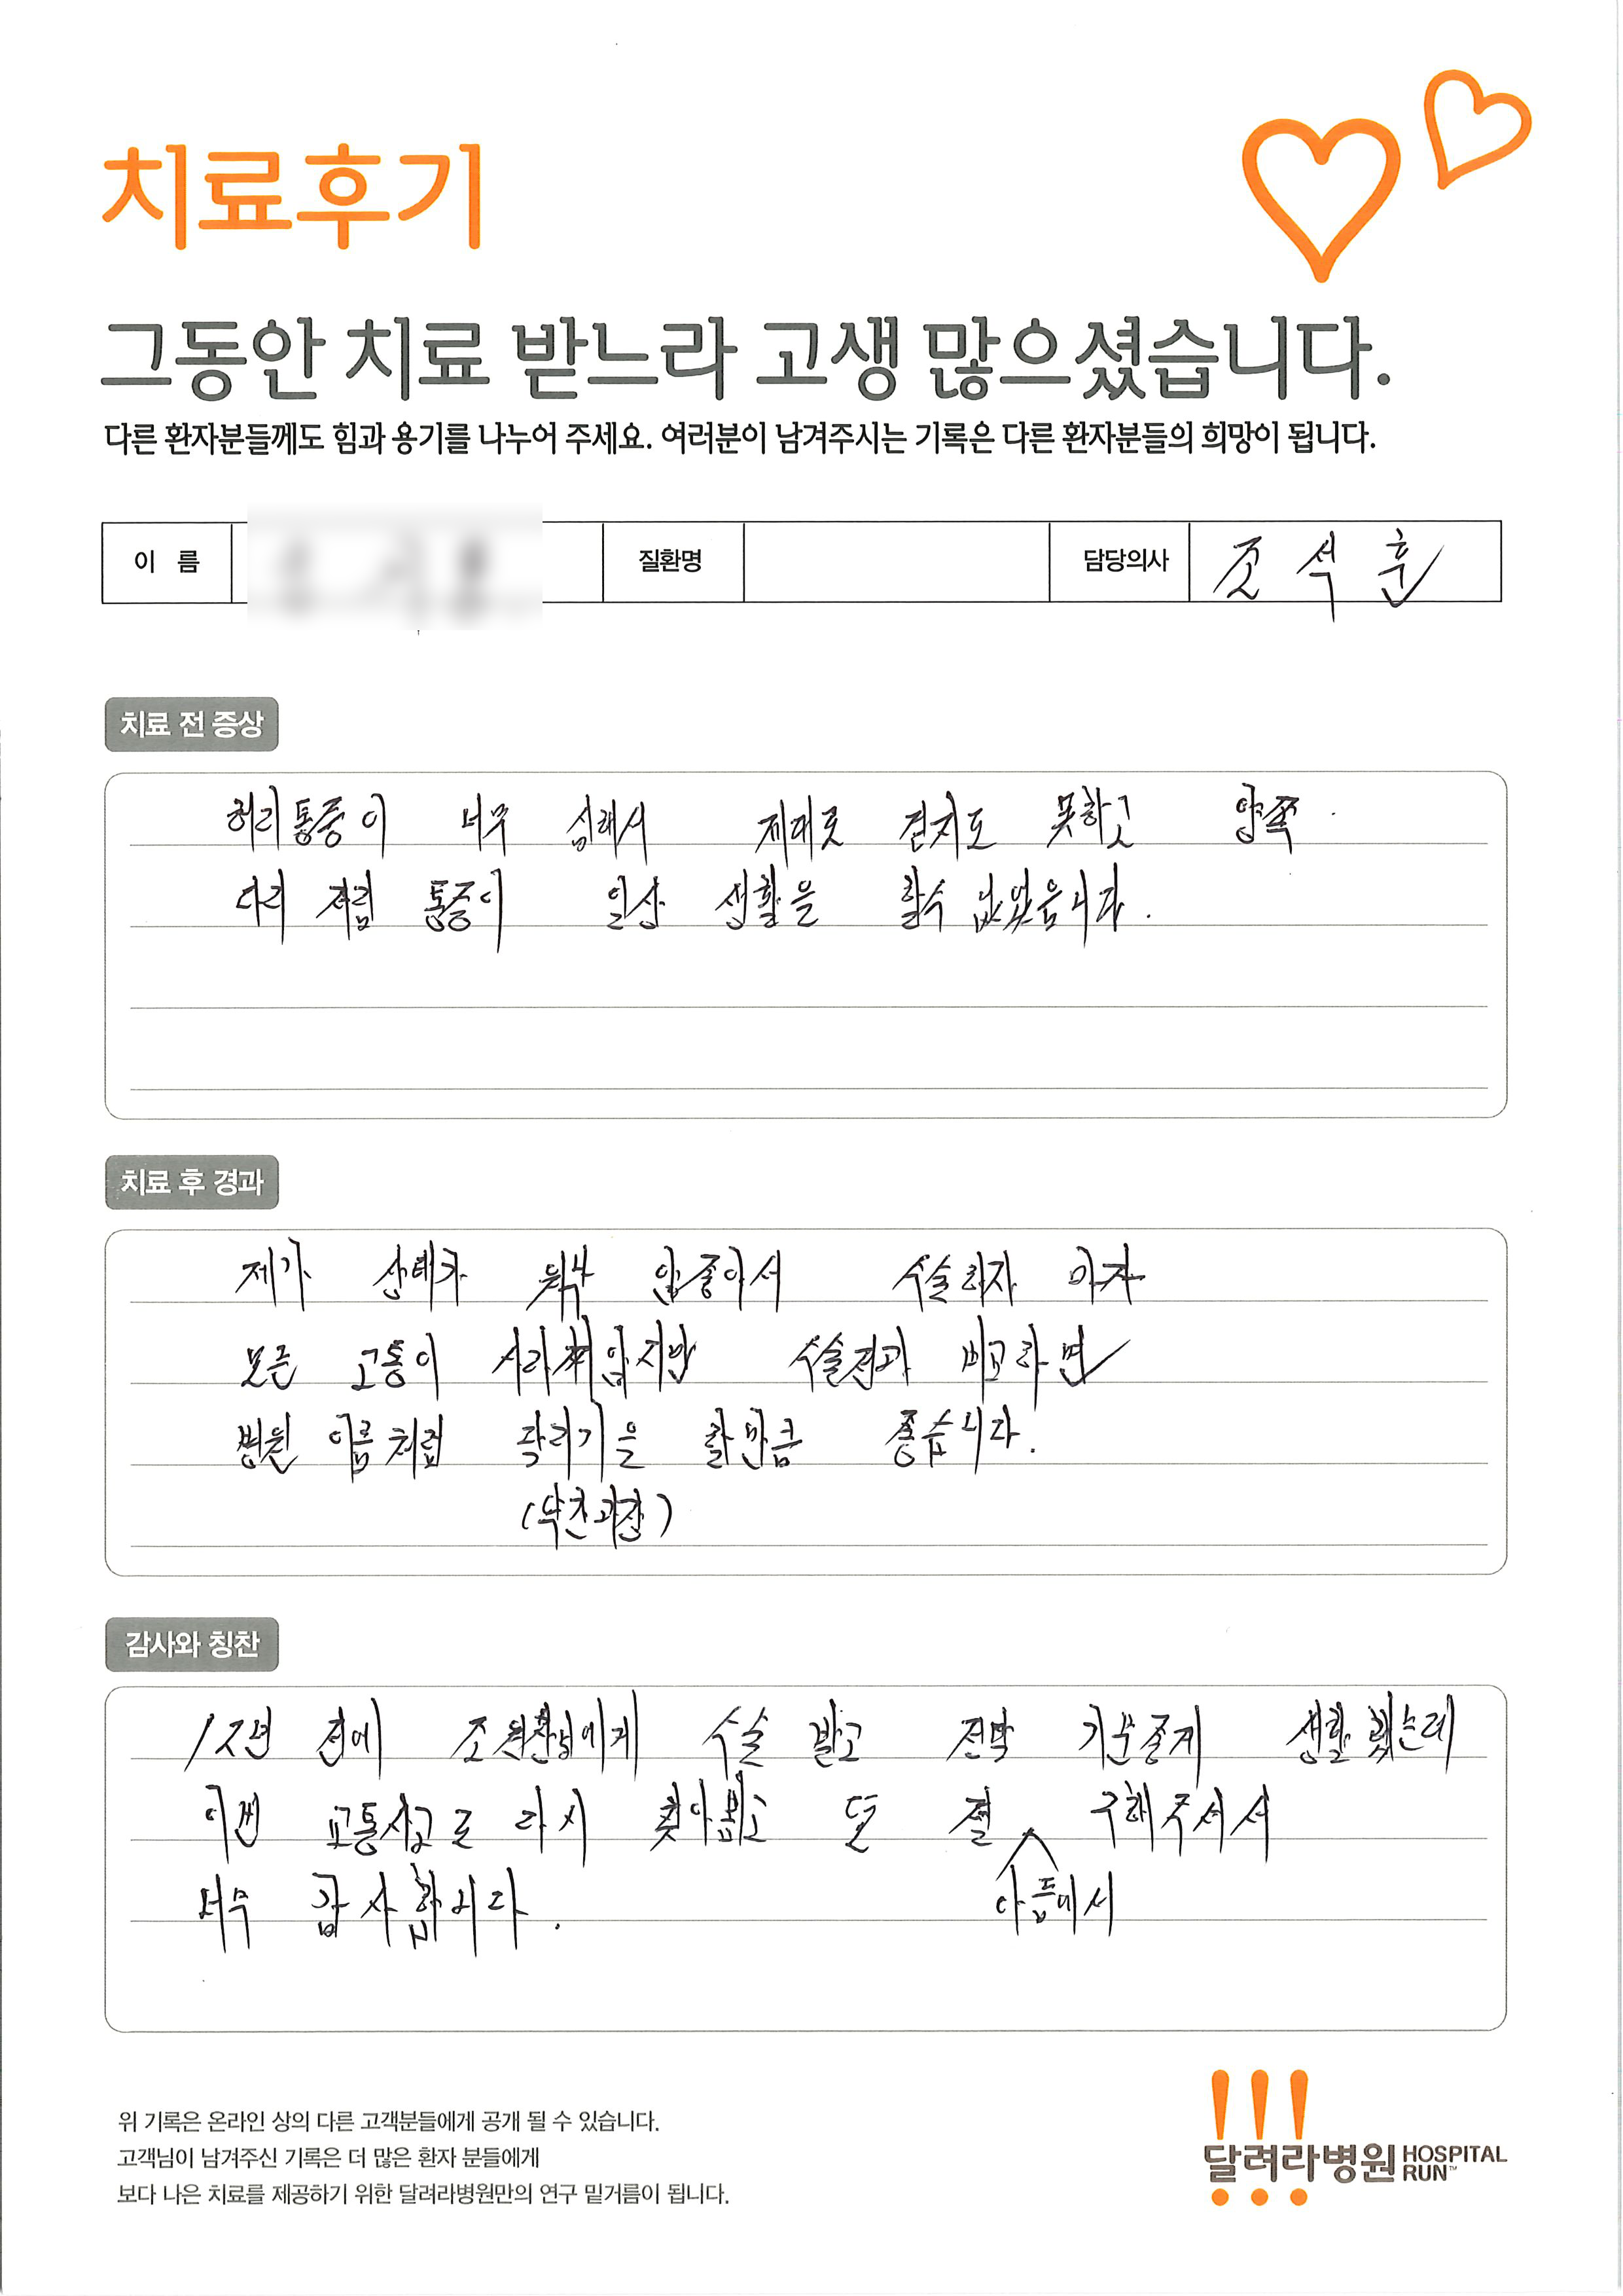 치료후기
그동안 치료 받느라 고생 많으셨습니다.
다른 환자분들께도 힘과 용기를 나누어 주세요. 여러분이 남겨주시는 기록은 다른 환자분들의 희망이 됩니다.
이 름 질환명 담당의사 조석훈
치료 전 증상
허리통증이 너무 심해서 제대로 걷지도 못하고 양쪽
다리 저림 통증이 일상 생활을 할수 없었읍니다.
치료 후 경과
제가 상태가 워낙 안좋아서 수술하자 마자
모든 고통이 사라지만 수술전과 비교하면
병원 이름처럼 달리기을 할만큼 좋습니다.
(약간과장)
감사와 칭찬
12년 전에 조원장님에게 수술 받고 전막 기분좋게 생활했는데
이번 교통사고로 다시 찾아뵙고 또 절 구해주셔서
아픔에서
너무 감사합니다.
위 기록은 온라인 상의 다른 고객분들에게 공개 될 수 있습니다.
고객님이 남겨주신 기록은 더 많은 환자 분들에게
보다 나은 치료를 제공하기 위한 달려라병원만의 연구 밑거름이 됩니다.
!!!
달려라병원 HOSPITAL RUN™